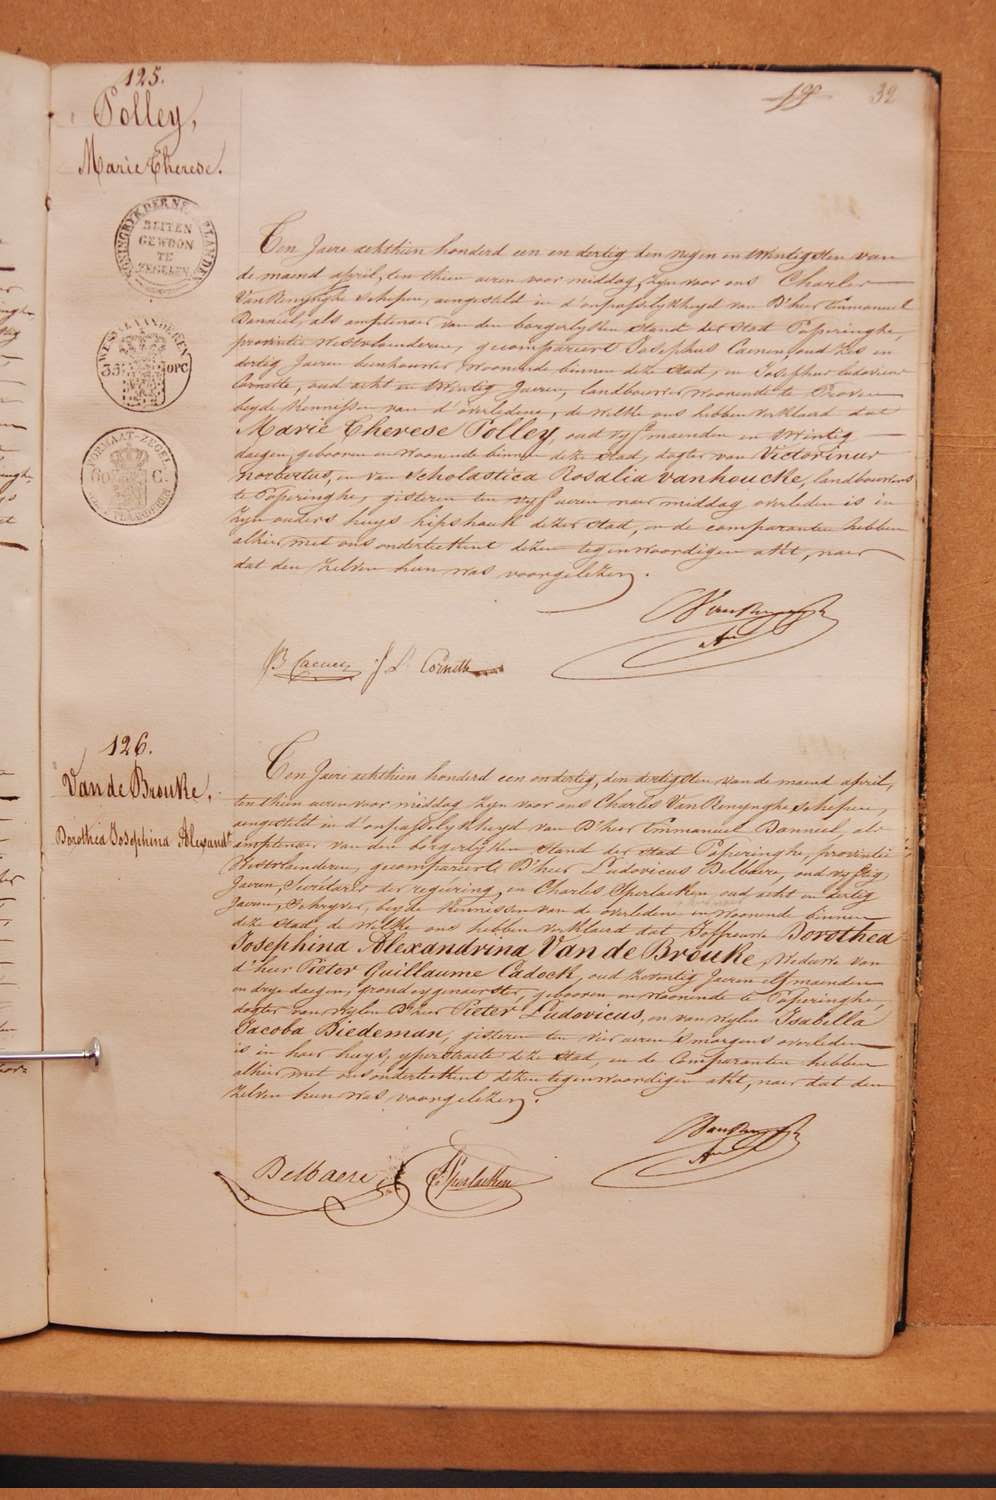 32
125.
Polley,
Marie Therese.
KONINGRYK DER NEDERLANDEN
BUITEN
GEWOON
TE
ZEGELEN
WEST-VLAANDEREN
35 OPC
FORMAAT-ZEGEL
60 C.
WEST-VLAANDEREN
Ten Jaere achthien honderd een en dertig den negen en twintigsten van
de maend april, ten thien aeren voor middag, zyn voor ons Charles
Van Renynghe Schepen, aengesteld in d'onpasselykheyd van D'heer Emmanuel
Banneel, als amptenaer van den borgerlyken Stand der Stad Poperinghe,
provintie Westvlaenderen, gecompareert Josephus Caenen oud zes en
dertig Jaeren beenhouwer woonende binnen deze stad, en Josephus Ludovicus
Cornette, oud acht en twintig Jaeren, landbouwer woonende te Proven
beyde Kennissen van d'overledene, de welke ons hebben verklaerd dat
Marie Therese Polley, oud vyf maenden en twintig
daegen, gebooren en woonende binnen deze stad, dogter van Victorinus
norbertus, en van Scholastica Rosalia vanhoucke, landbouwers
te Poperinghe, gisteren ten vyf aeren naer middag overleden is in
zyn ouders huys hipshoek dezer stad, en de comparanten hebben
alhier met ons onderteekent dezen tegenwoordigen akt, naer
dat den zelven hun was voorgelezen.
J L Cornette
126.
Van de Brouke,
Dorothea Josephina Alexandr
Ten Jaere achthien honderd een en dertig, den dertigsten van de maend april,
ten thien aeren voor middag zyn voor ons Charles Van Renynghe Schepen,
aengesteld in d'onpasselykheyd van D'heer Emmanuel Banneel, als
amptenaer van den borgerlyken Stand der stad Poperinghe, provintie
Westvlaenderen, gecompareert D'heer Ludovicus Delbaere, oud vyftig
Jaeren, Secretaris der regeering, en Charles Sperlaeken, oud acht en dertig
Jaeren, Schryver, beyde Kennissen van de overledene en woonende binnen
deze Stad, de welke ons hebben verklaerd dat Joffrouwe Dorothea
Josephina Alexandrina Van de Brouke, Weduwe van
d'heer Pieter Guillaume Cadock, oud zeventig Jaeren elf maenden
en drye daegen, grondeygenaerster, gebooren en woonende te Poperinghe,
dogter van wylen D'heer Pieter Ludovicus, en van wylen Isabella
Jacoba Biedeman, gisteren ten vier aeren s'morgens overleden
is in haer huys, yperstraete deze Stad, en de Comparanten hebben
alhier met ons onderteekent dezen tegenwoordigen akt, naer dat den
zelven hun was voorgelezen.
Delbaere
C. Sperlaeken